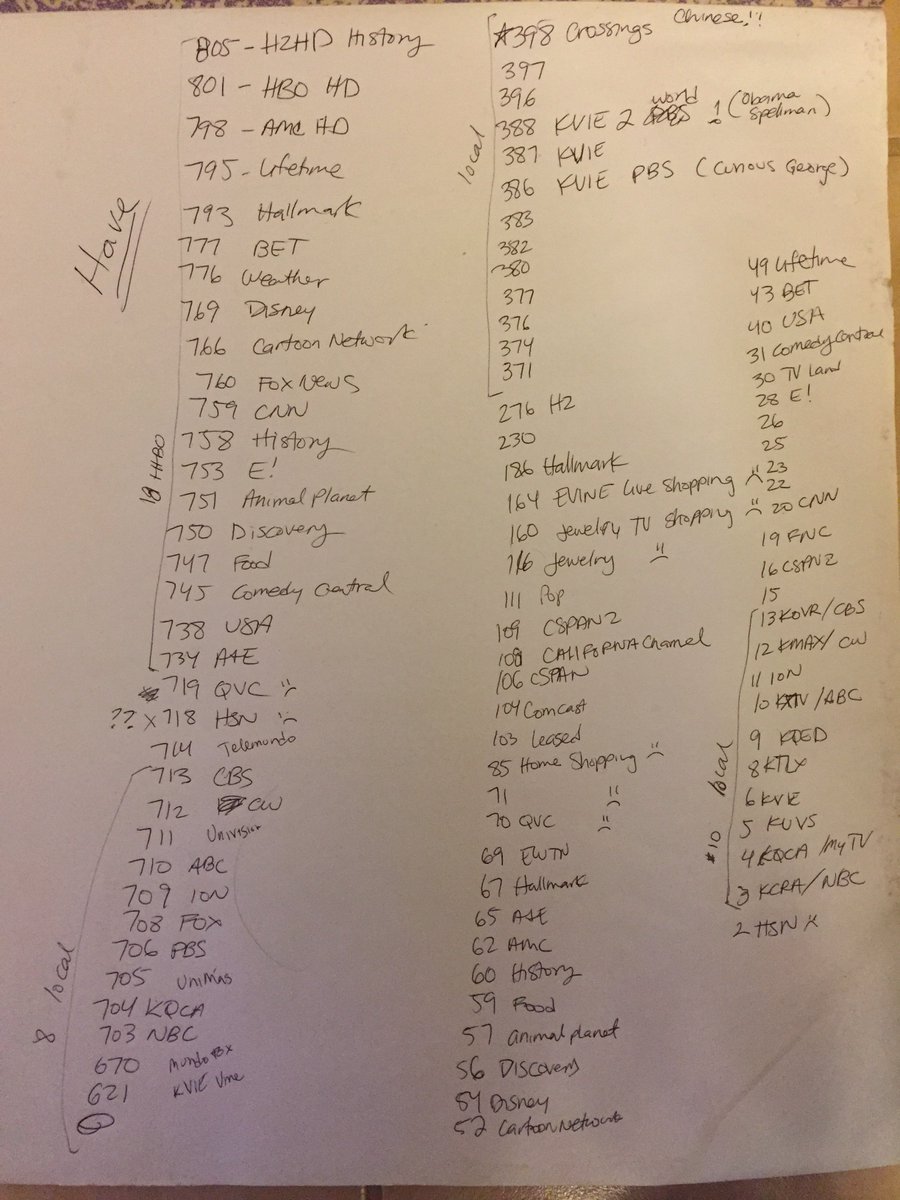 Have
805 - H2HD History
801 - HBO HD
798 - AMC HD
795 - Lifetime
793 Hallmark
777 BET
776 Weather
769 Disney
766 Cartoon Network
760 Fox News
759 CNN
758 History
753 E!
751 Animal Planet
750 Discovery
747 Food
745 Comedy Central
738 USA
734 A&E
719 QVC
?? x 718 HSN
714 Telemundo
713 CBS
712 CW
711 Univision
710 ABC
709 ION
708 FOX
706 PBS
705 UniMás
704 KQCA
703 NBC
670 Mundo
621 KVIE Vme
8 local
local
*398 Crossings Chinese!!
397
396
388 KVIE 2 world ! (Obama Spellman)
387 KVIE
386 KVIE PBS (Curious George)
383
382
380
377
376
374
371
276 H2
230
186 Hallmark
164 EVINE Live Shopping
160 Jewelry TV Shopping
Jewelry
111 Pop
109 CSPAN2
108 CALIFORNIA Channel
106 CSPAN
104 Comcast
103 Leased
85 Home Shopping
71
70 QVC
69 EWTN
67 Hallmark
65 A&E
62 AMC
60 History
59 Food
57 animal planet
56 Discovery
54 Disney
52 Cartoon Network
49 Lifetime
43 BET
40 USA
31 Comedy Central
30 TV Land
28 E!
26
25
23
22
20 CNN
19 FNC
16 CSPAN2
15
13 KOVR/CBS
12 KMAX/CW
11 ION
10 KXTV/ABC
9 KQED
8 KTLX
6 KVIE
5 KUVS
4 KQCA/MyTV
3 KCRA/NBC
2 HSN
#10 local